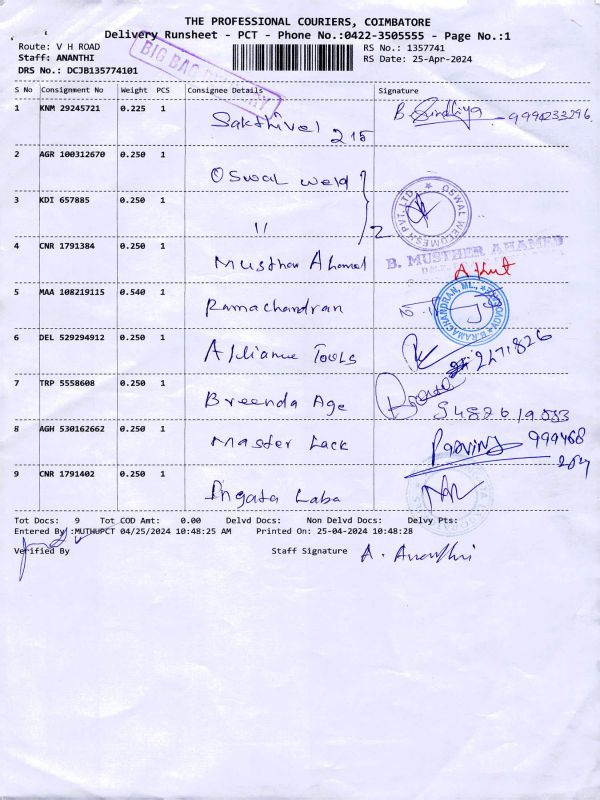 THE PROFESSIONAL COURIERS, COIMBATORE
Delivery Runsheet - PCT - Phone No.:0422-3505555 - Page No.:1
Route: V H ROAD
RS No.: 1357741
Staff: ANANTHI
RS Date: 25-Apr-2024
DRS No.: DCJB135774101
BIG BAG
S No Consignment No Weight PCS Consignee Details Signature
1 KNM 29245721 0.225 1 Sakthivel 215 B. Sindhiya
2 AGR 100312670 0.250 1 Oswal weld
3 KDI 657885 0.250 1 " } 2 OSWAL WELDMESH PVT. LTD.
4 CNR 1791384 0.250 1 Musthar Ahamed B. MUSTHER AHAMED
5 MAA 108219115 0.540 1 Ramachandran B.RAMACHANDRAN, ML., ADVO
6 DEL 529294912 0.250 1 Alliance Tools 2471826
7 TRP 5558608 0.250 1 Breenda Age
8 AGH 530162662 0.250 1 Master Lack
9 CNR 1791402 0.250 1 Laba
Tot Docs: 9 Tot COD Amt: 0.00 Delvd Docs: Non Delvd Docs: Delvy Pts:
Entered By :MUTHUPCT 04/25/2024 10:48:25 AM Printed On: 25-04-2024 10:48:28
Verified By Staff Signature A. Ananthi